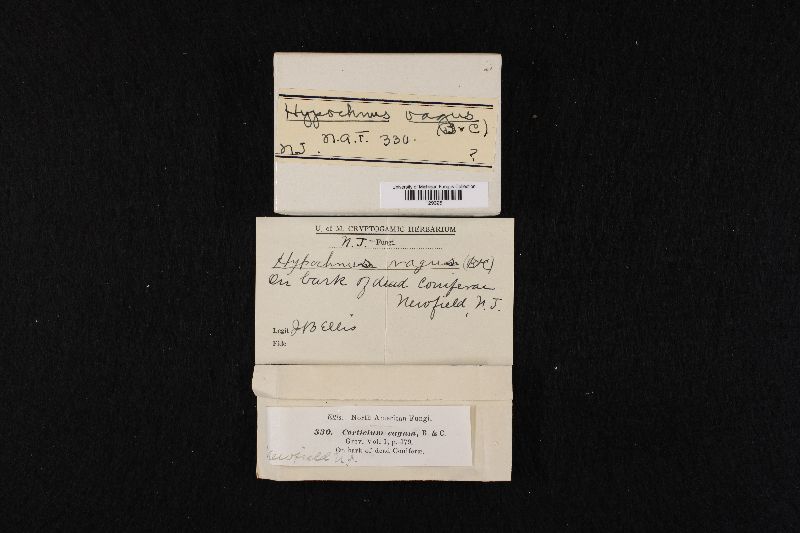 Hypochnus vagus
(B & C)
N.A.F. 330.
N.J.
?
University of Michigan Fungus Collection
U. of M. CRYPTOGAMIC HERBARIUM
N. J. Fungi
Hypochnus vagus (B&C)
On bark of dead Coniferae
Newfield, N.J.
Legit J B Ellis
Fide
Ellis. North American Fungi.
330. Corticium vagum, B. & C.
Grev. Vol. 1, p. 179.
On bark of dead Coniferæ.
Newfield N.J.